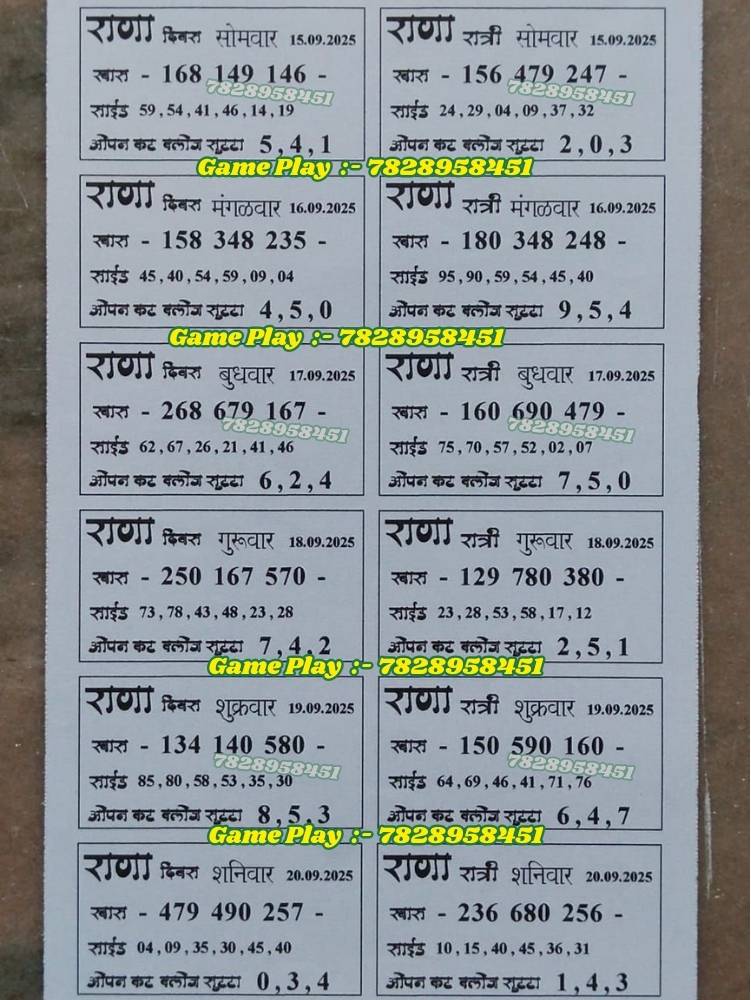 राणा दिवस सोमवार 15.09.2025
खास - 168 149 146 -
7828958451
साईड 59,54,41,46,14,19
ओपन कट क्लोज सुट्टा 5,4,1
राणा रात्री सोमवार 15.09.2025
खास - 156 479 247 -
7828958451
साईड 24,29,04,09,37,32
ओपन कट क्लोज सुट्टा 2,0,3
Game Play :- 7828958451
राणा दिवस मंगळवार 16.09.2025
खास - 158 348 235 -
साईड 45,40,54,59,09,04
ओपन कट क्लोज सुट्टा 4,5,0
राणा रात्री मंगळवार 16.09.2025
खास - 180 348 248 -
साईड 95,90,59,54,45,40
ओपन कट क्लोज सुट्टा 9,5,4
Game Play :- 7828958451
राणा दिवस बुधवार 17.09.2025
खास - 268 679 167 -
7828958451
साईड 62,67,26,21,41,46
ओपन कट क्लोज सुट्टा 6,2,4
राणा रात्री बुधवार 17.09.2025
खास - 160 690 479 -
7828958451
साईड 75,70,57,52,02,07
ओपन कट क्लोज सुट्टा 7,5,0
राणा दिवस गुरूवार 18.09.2025
खास - 250 167 570 -
साईड 73,78,43,48,23,28
ओपन कट क्लोज सुट्टा 7,4,2
राणा रात्री गुरूवार 18.09.2025
खास - 129 780 380 -
साईड 23,28,53,58,17,12
ओपन कट क्लोज सुट्टा 2,5,1
Game Play :- 7828958451
राणा दिवस शुक्रवार 19.09.2025
खास - 134 140 580 -
7828958451
साईड 85,80,58,53,35,30
ओपन कट क्लोज सुट्टा 8,5,3
राणा रात्री शुक्रवार 19.09.2025
खास - 150 590 160 -
7828958451
साईड 64,69,46,41,71,76
ओपन कट क्लोज सुट्टा 6,4,7
Game Play :- 7828958451
राणा दिवस शनिवार 20.09.2025
खास - 479 490 257 -
साईड 04,09,35,30,45,40
ओपन कट क्लोज सुट्टा 0,3,4
राणा रात्री शनिवार 20.09.2025
खास - 236 680 256 -
साईड 10,15,40,45,36,31
ओपन कट क्लोज सुट्टा 1,4,3